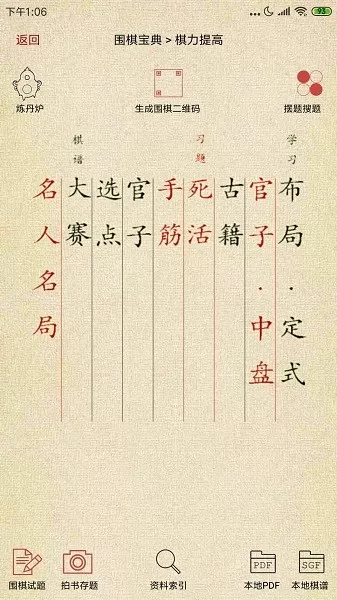 下午1:06
... 93
返回
围棋宝典 > 棋力提高
炼丹炉
生成围棋二维码
摆题搜题
学习
习题
棋谱
布局·定式
官子·中盘
古籍
死活
手筋
官子
选点
大赛
名人名局
围棋试题
拍书存题
资料索引
PDF
本地PDF
SGF
本地棋谱